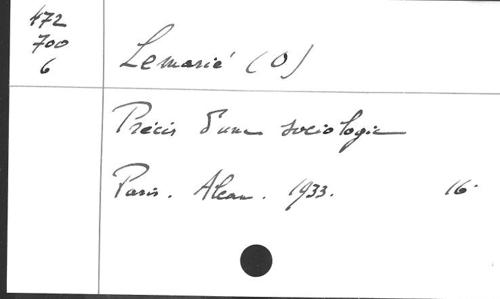 472
700
6
Lemarié (O)
Précis d'une sociologie
Paris. Alcan. 1933. 16°